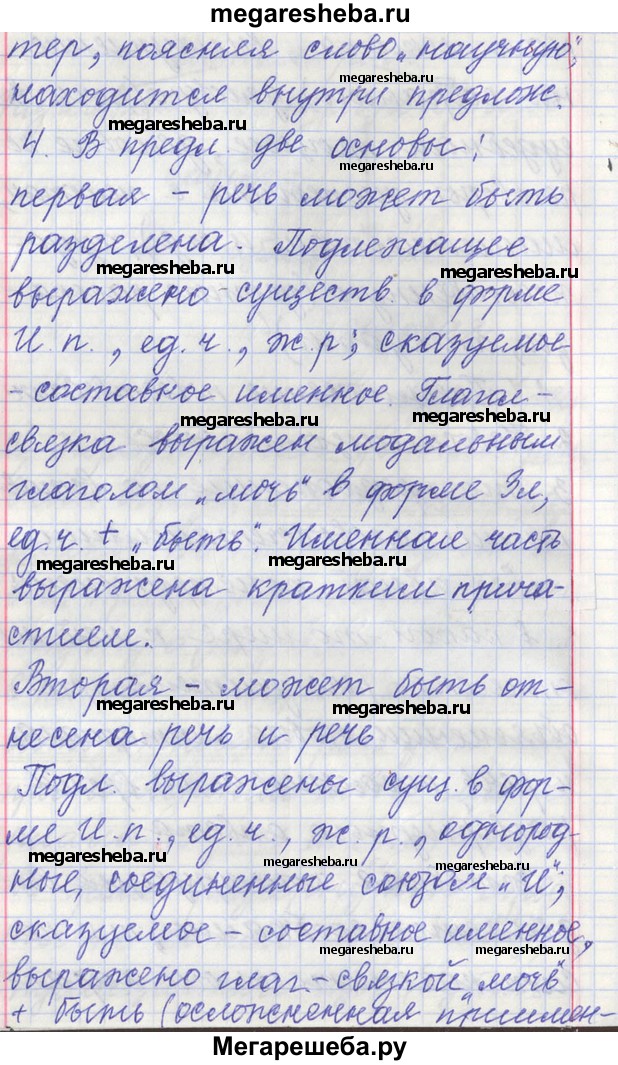 megaresheba.ru
тер, поясняя слово „научную",
megaresheba.ru
находится внутри предлож.
megaresheba.ru
4. В предл. две основы:
megaresheba.ru
первая – речь может быть
разделена. Подлежащее
megaresheba.ru megaresheba.ru
выражено существ. в форме
И.п., ед.ч., ж.р; сказуемое
- составное именное. Глагол-
megaresheba.ru megaresheba.ru
связка выражен модальным
глаголом „мочь" в форме 3л,
megaresheba.ru
ед.ч. + „быть". Именная часть
megaresheba.ru megaresheba.ru
выражена кратким прича-
стием.
Вторая – может быть от-
megaresheba.ru
несена речь и речь
Подл. выражены сущ. в фор-
ме И.п., ед.ч., ж.р., однород-
megaresheba.ru megaresheba.ru
ные, соединенные союзом „И";
сказуемое – составное именное,
megaresheba.ru megaresheba.ru
выражено глаг.-связкой „мочь"
+ быть (осложненная
Мегарешеба.ру